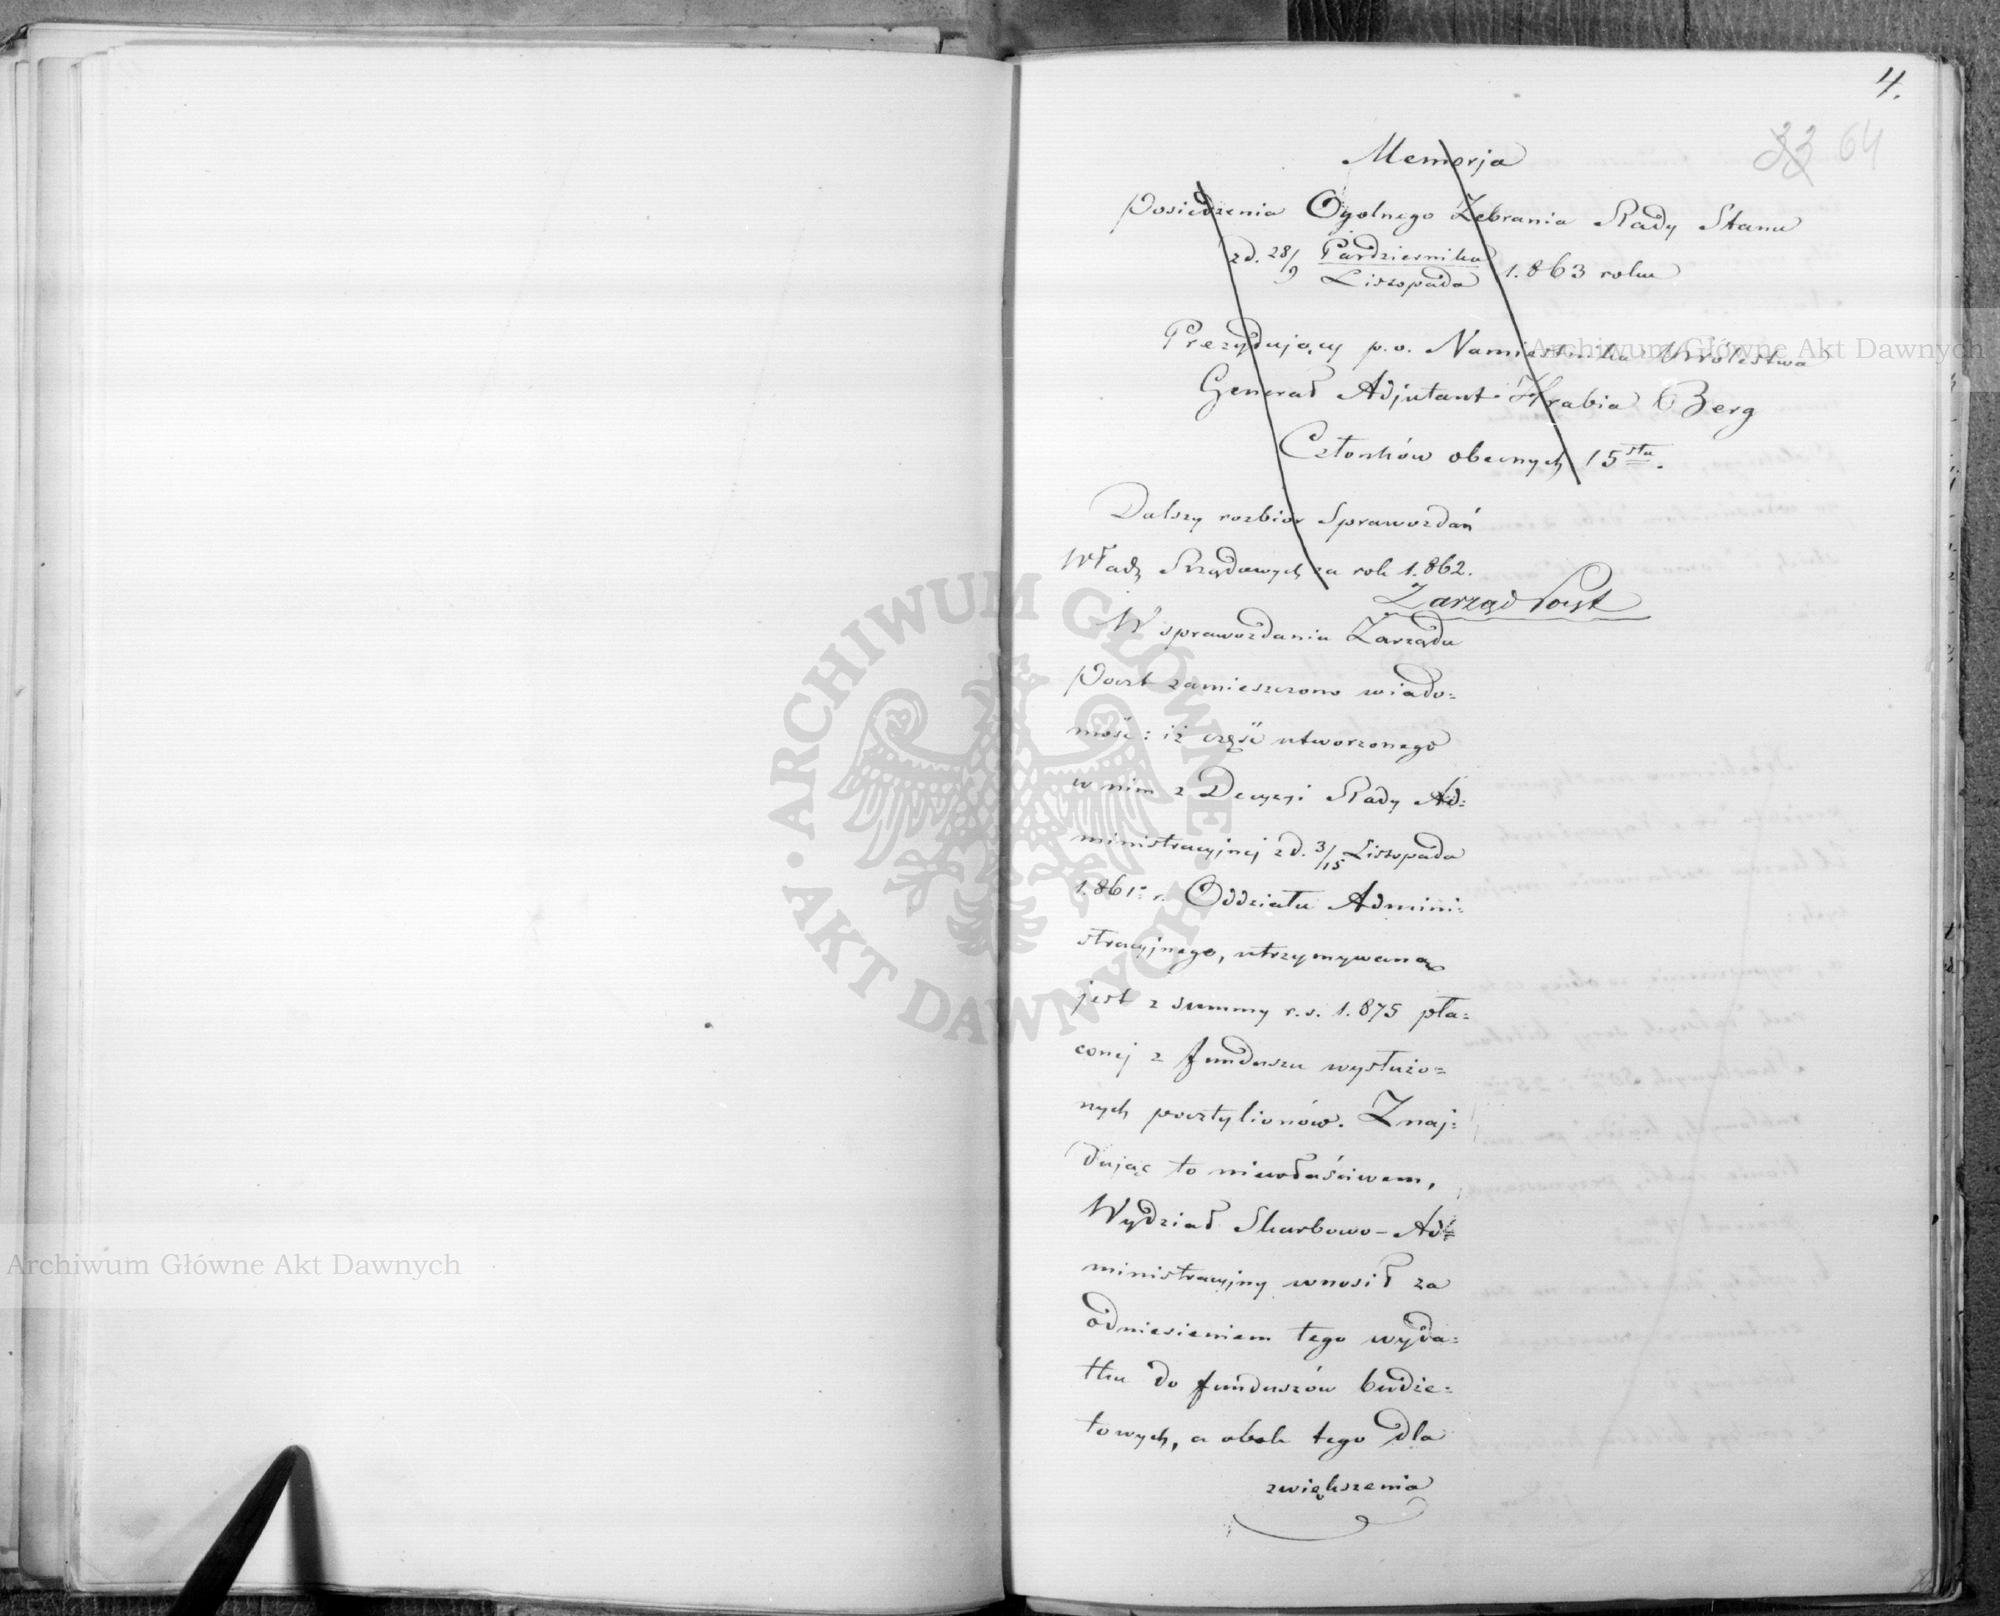 4.
33 64
Memorja
Posiedzenia Ogolnego Zebrania Rady Stanu
z d. 28/9 Października/Listopada 1.863 roku
Prezydujący p.o. Namiestnika Królestwa
Generał Adjutant Hrabia Berg
Członków obecnych 15stu.
Dalszy rozbior Sprawozdań
Władz Rządowych za rok 1.862.
Zarząd Poczt
W sprawozdaniu Zarządu
Poczt zamieszczono wiado=
mość: iż część utworzonego
w nim z Decyzyi Rady Ad=
ministracyjnej z d. 3/15 Listopada
1.861 r. Oddziału Admini=
stracyjnego, utrzymywaną
jest z summy r.s. 1.875 pła=
conej z funduszu wysłużo=
nych pocztylionów. Znaj=
dując to niewłaściwem,
Wydział Skarbowo-Ad=
ministracyjny wnosił za
odniesieniem tego wyda=
tku do funduszów budże=
towych, a obok tego dla
zwiększenia
ARCHIWUM GŁÓWNE • AKT DAWNYCH •
Archiwum Główne Akt Dawnych
Archiwum Główne Akt Dawnych